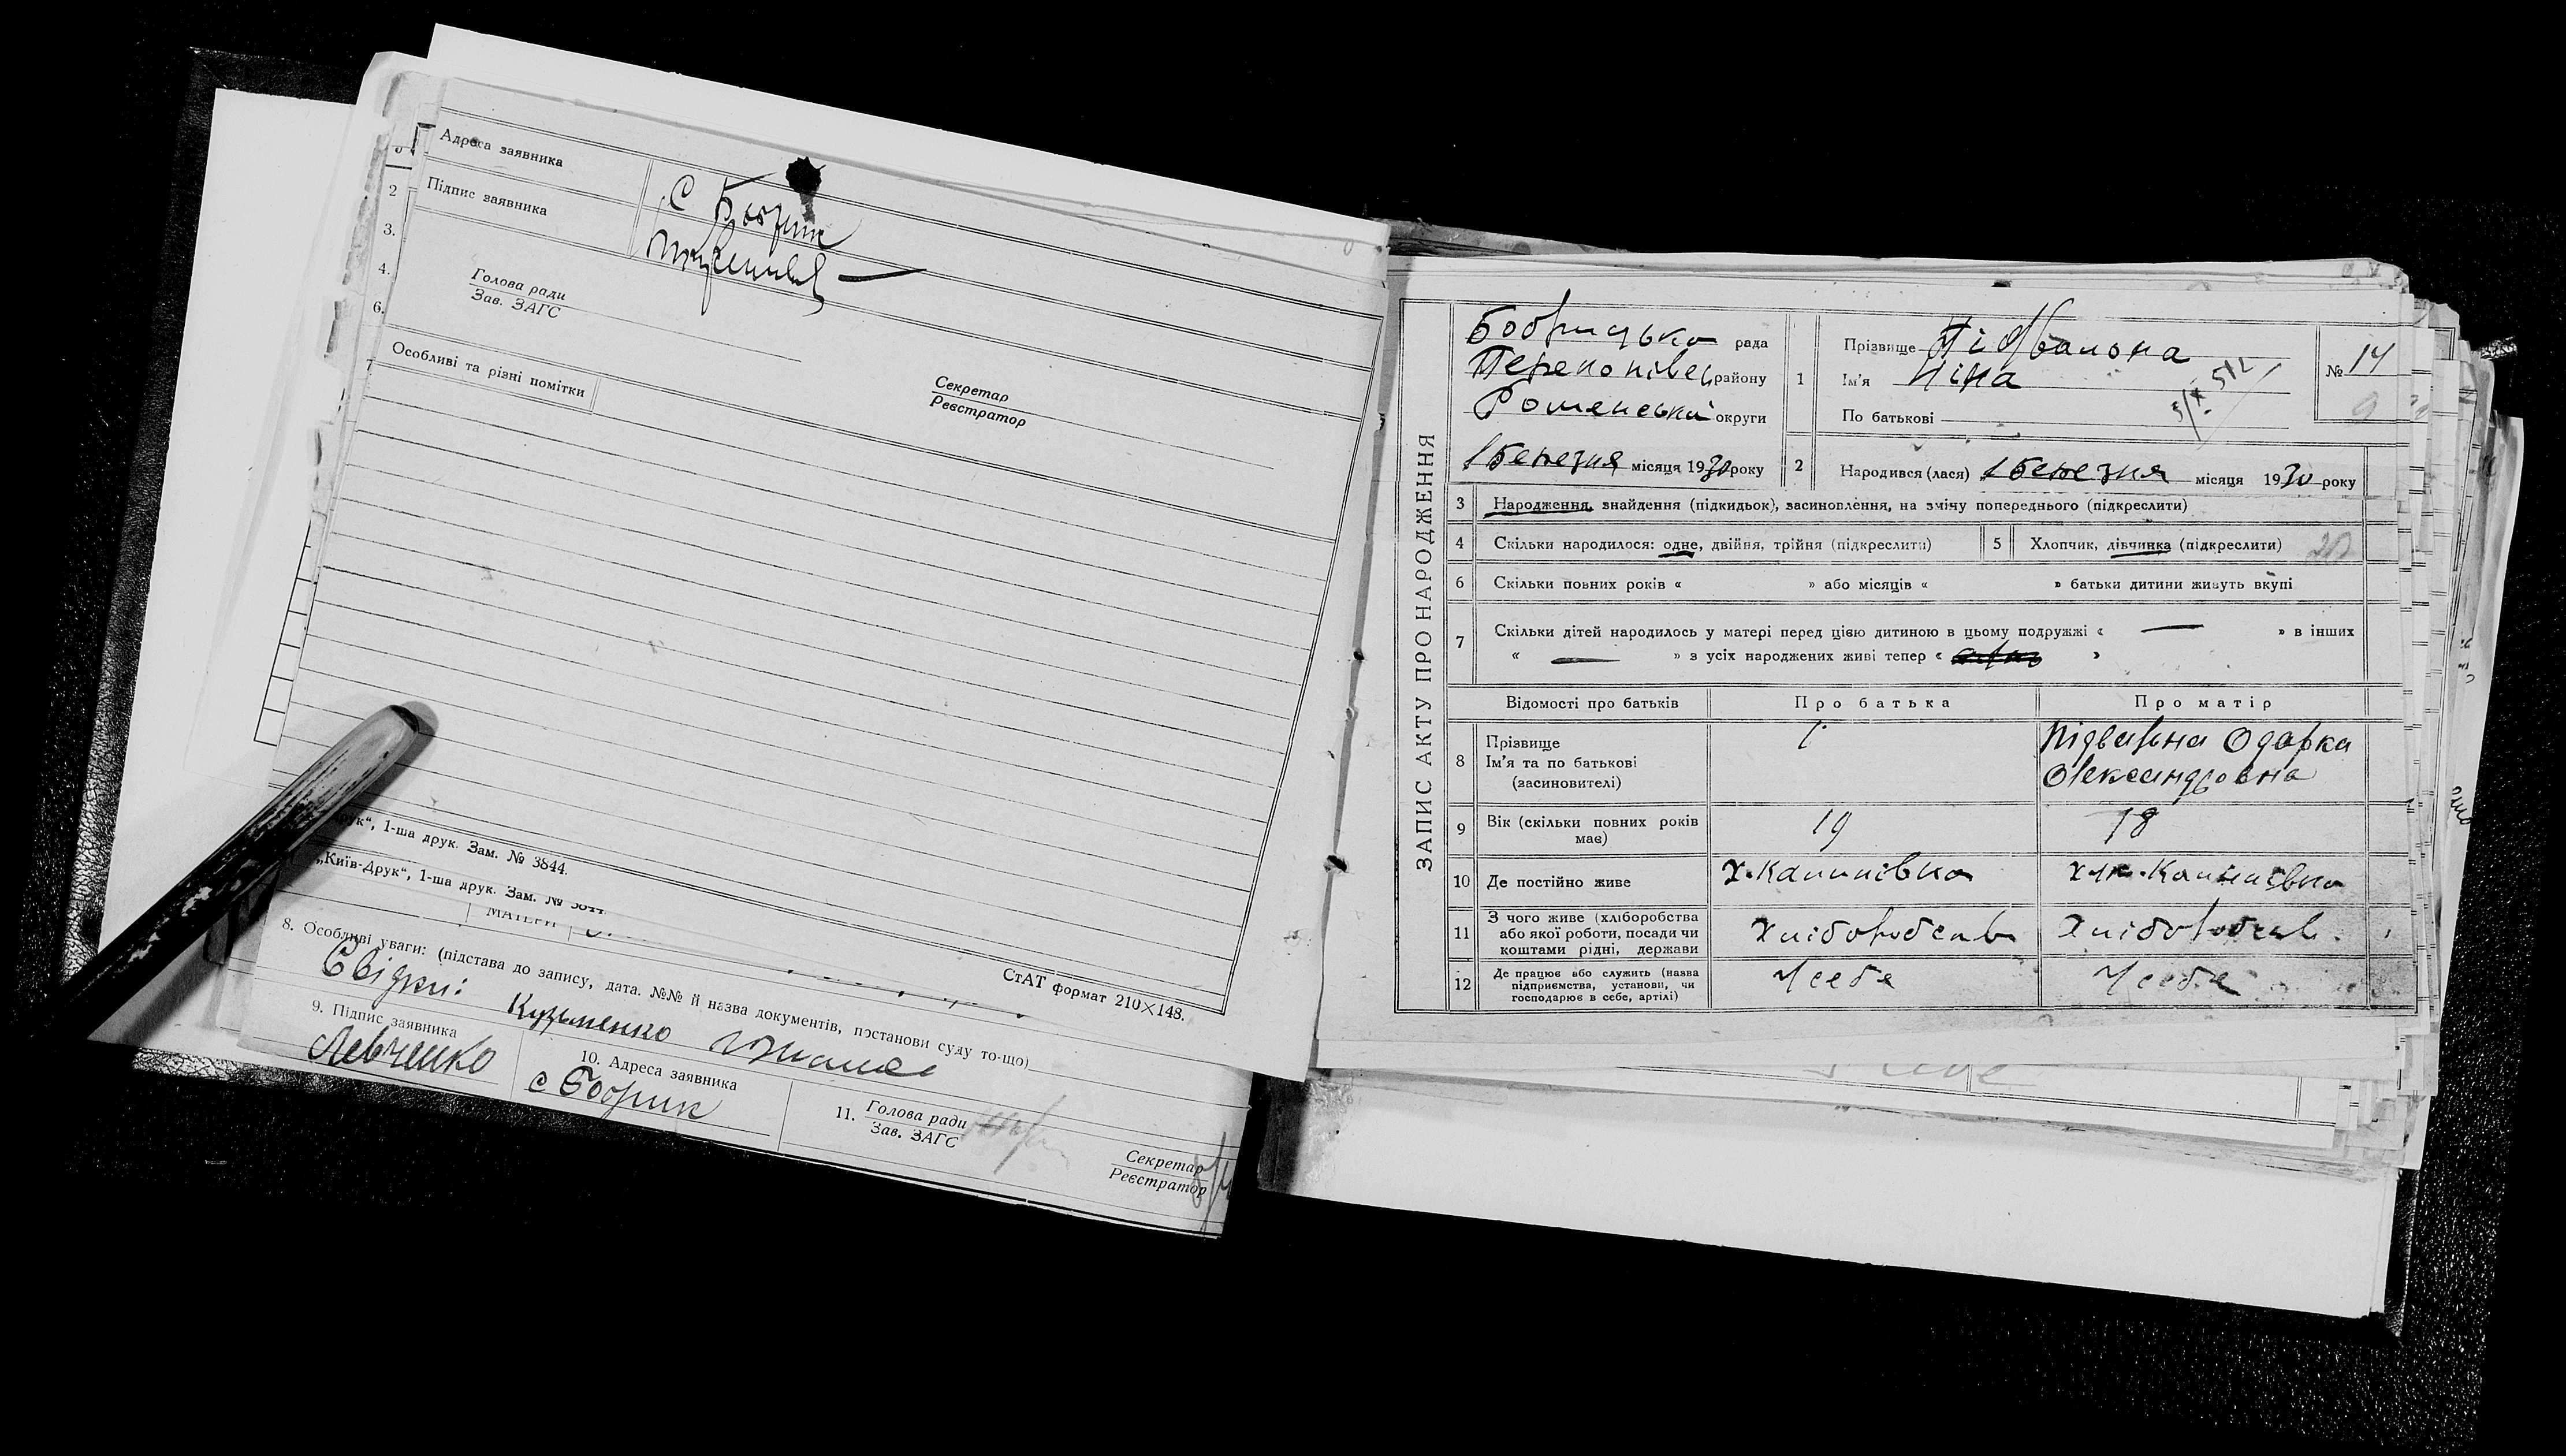 Адреса заявника
с Бобрик
Підпис заявника
Голова ради
Зав. ЗАГС
Секретар
Реєстратор
Особливі та різні помітки
друк“, 1-ша друк. Зам. № 3844.
„Київ-Друк“, 1-ша друк. Зам. №
СтАТ формат 210×148.
2
3.
4.
6.
7
8. Особливі уваги: (підстава до запису, дата. №№ й назва документів, постанови суду то-що)
Свідки: Кузьменко
9. Підпис заявника
Левченко
10. Адреса заявника
с Бобрик
11. Голова ради
Зав. ЗАГС
Секретар
Реєстратор
ЗАПИС АКТУ ПРО НАРОДЖЕННЯ
Бобрицька рада
району
Роменської округи
1 Березня місяця 1930 року
1 Прізвище
Ім'я Ніна
По батькові
№ 14
2 Народився (лася) 1 Березня місяця 1930 року
3 Народження, знайдення (підкидьок), засиновлення, на зміну попереднього (підкреслити)
4 Скільки народилося: одне, двійня, трійня (підкреслити) 5 Хлопчик, дівчинка (підкреслити)
6 Скільки повних років « » або місяців « » батьки дитини живуть вкупі
7 Скільки дітей народилось у матері перед цією дитиною в цьому подружжі « — » в інших
« — » з усіх народжених живі тепер « »
Відомості про батьків Про батька Про матір
8 Прізвище
Ім'я та по батькові
(засиновителі)
Одарка
Олександровна
9 Вік (скільки повних років має) 19 18
10 Де постійно живе х. Калинівка Калинівка
11 З чого живе (хліборобства
або якої роботи, посади чи
коштами рідні, держави
12 Де працює або служить (назва
підприємства, установи, чи
господарює в себе, артілі)
У себе У себе